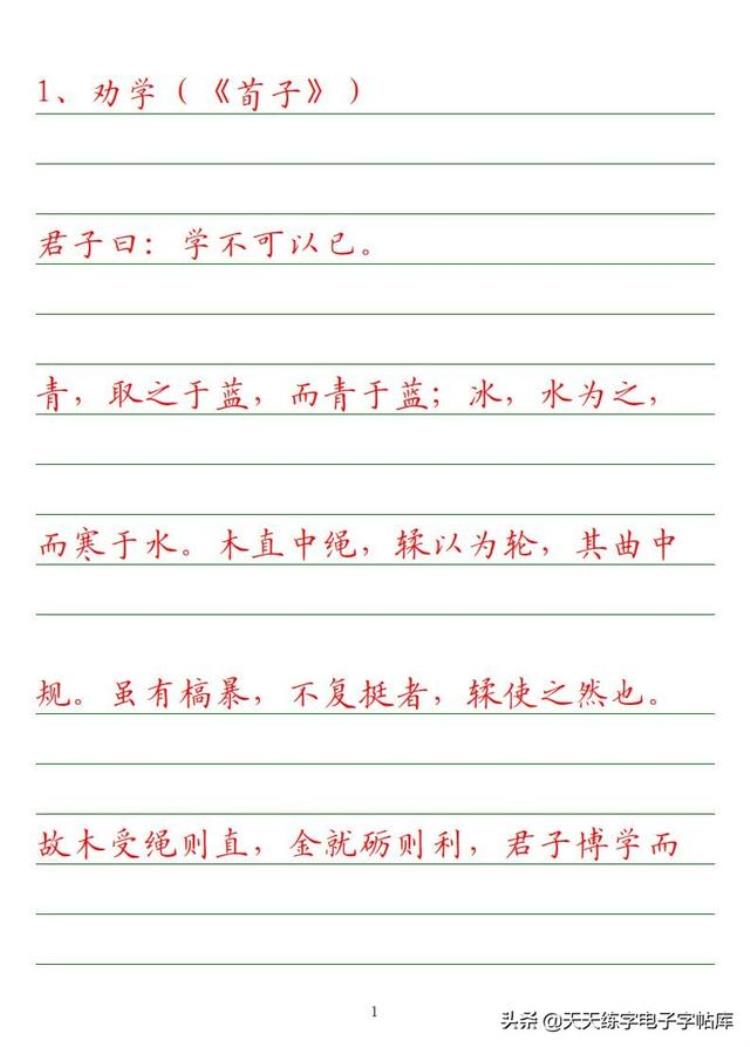 1、劝学（《荀子》）
君子曰：学不可以已。
青，取之于蓝，而青于蓝；冰，水为之，
而寒于水。木直中绳，輮以为轮，其曲中
规。虽有槁暴，不复挺者，輮使之然也。
故木受绳则直，金就砺则利，君子博学而
1
头条 @天天练字电子字帖库